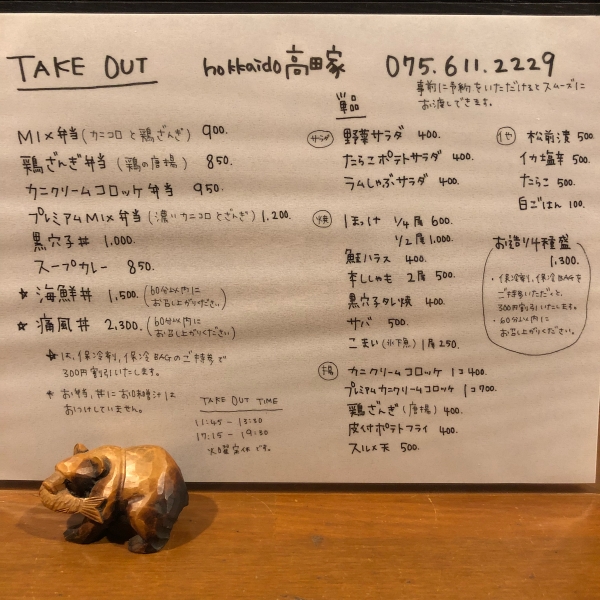 TAKE OUT
hokkaido 高田家
075.611.2229
事前に予約をいただけるとスムーズに
お渡しできます。
MIX弁当(カニコロと鶏ざんぎ) 900.
鶏ざんぎ弁当 (鶏の唐揚) 850.
カニクリームコロッケ弁当 950.
プレミアムMIX弁当(濃いカニコロとざんぎ) 1,200.
黒穴子丼 1,000.
スープカレー 850.
★海鮮丼 1,500.(60分以内にお召し上がりください)
★痛風丼 2,300.(60分以内にお召し上がりください)
★は、保冷剤、保冷BAGのご持参で
300円割引いたします。
* お弁当、丼にお味噌汁は
おつけしていません。
TAKE OUT TIME
11:45 - 13:30
17:15 - 19:30
火曜定休です。
単品
サラダ 野菜サラダ 400.
たらこポテトサラダ 400.
ラムしゃぶサラダ 400.
焼 ほっけ 1/4尾 600.
1/2尾 1,000.
鮭ハラス 400.
本ししゃも 2尾 500.
黒穴子タレ焼 400.
サバ 500.
こまい(氷下魚) 1尾 250.
揚 カニクリームコロッケ 1コ 400.
プレミアムカニクリームコロッケ 1コ 700.
鶏ざんぎ(唐揚) 400.
皮付ポテトフライ 400.
スルメ天 500.
他 松前漬 500.
イカ塩辛 500.
たらこ 500.
白ごはん 100.
お造り4種盛
1,300.
・保冷剤、保冷BAGを
ご持参いただくと、
300円割引いたします。
・60分以内に
お召し上がりください。